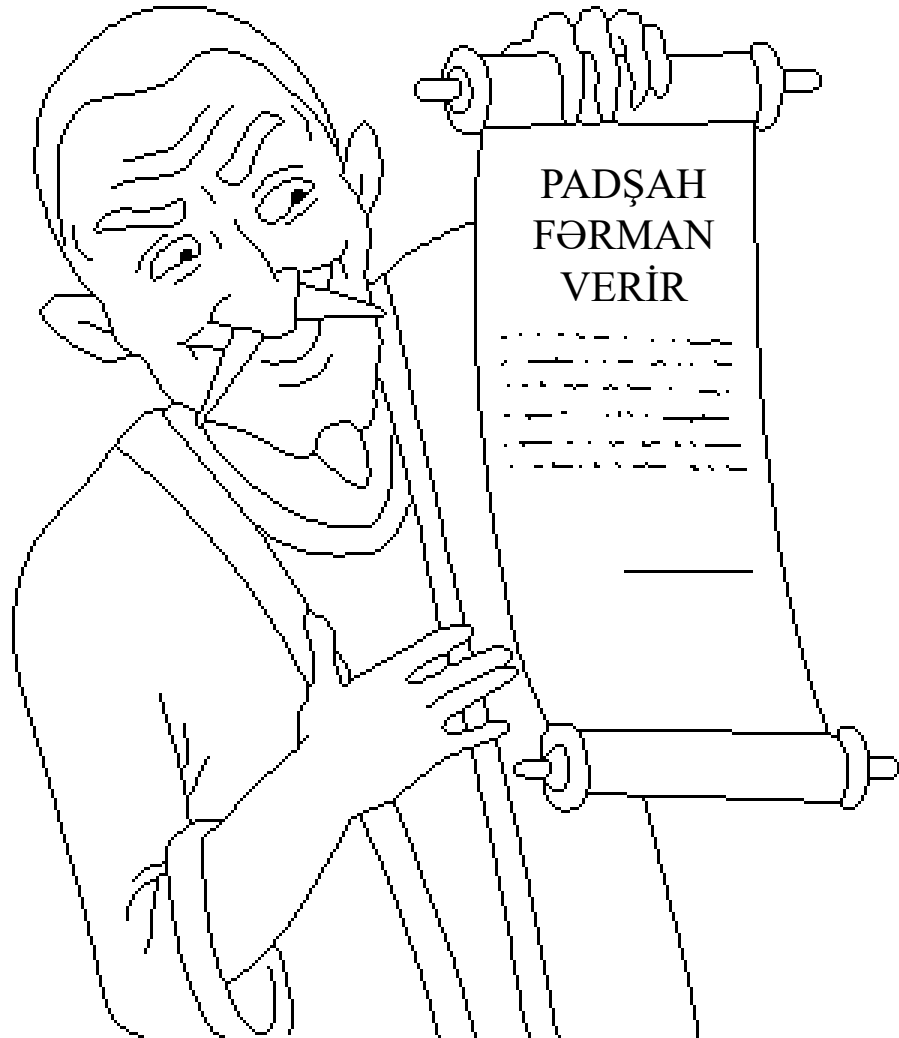 PADŞAH
FƏRMAN
VERİR